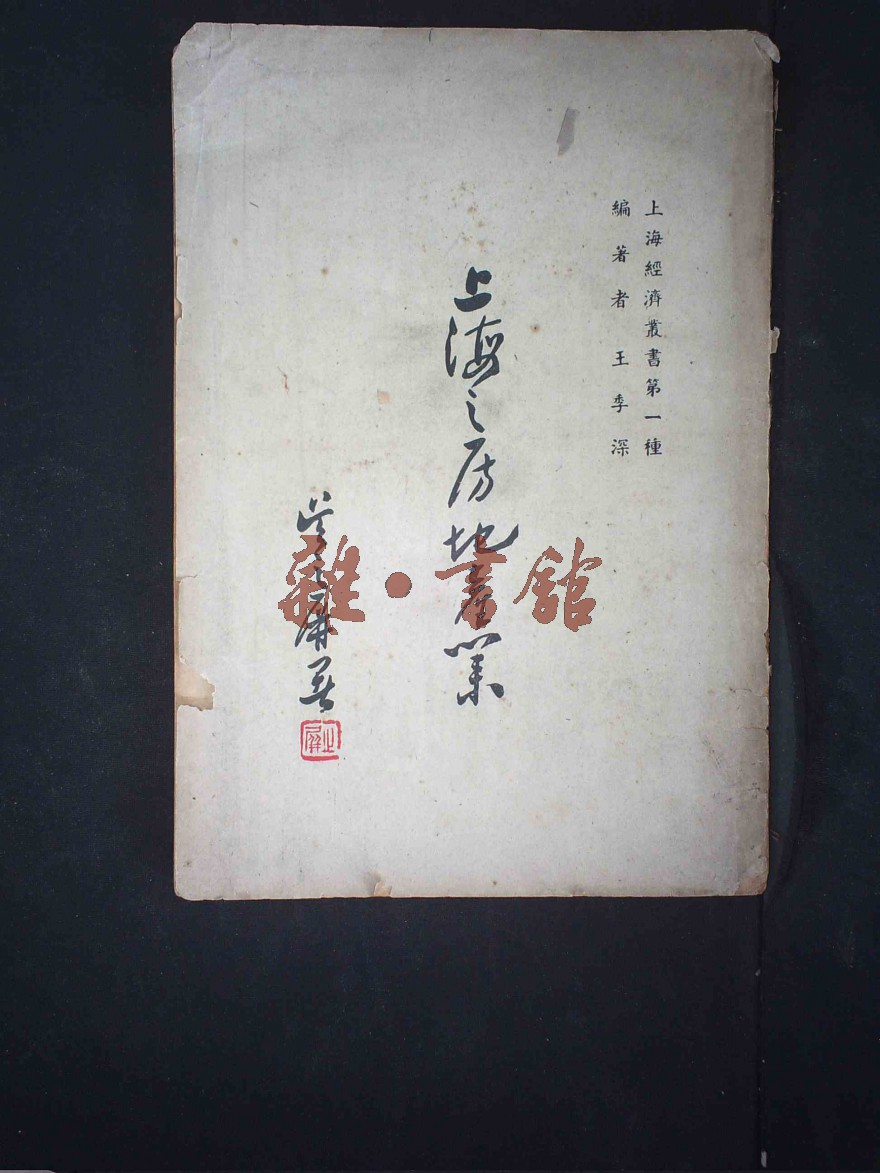 上海經濟叢書第一種
編著者王季深
上海之房地產業
吳之屏署
之屏
雜·書館